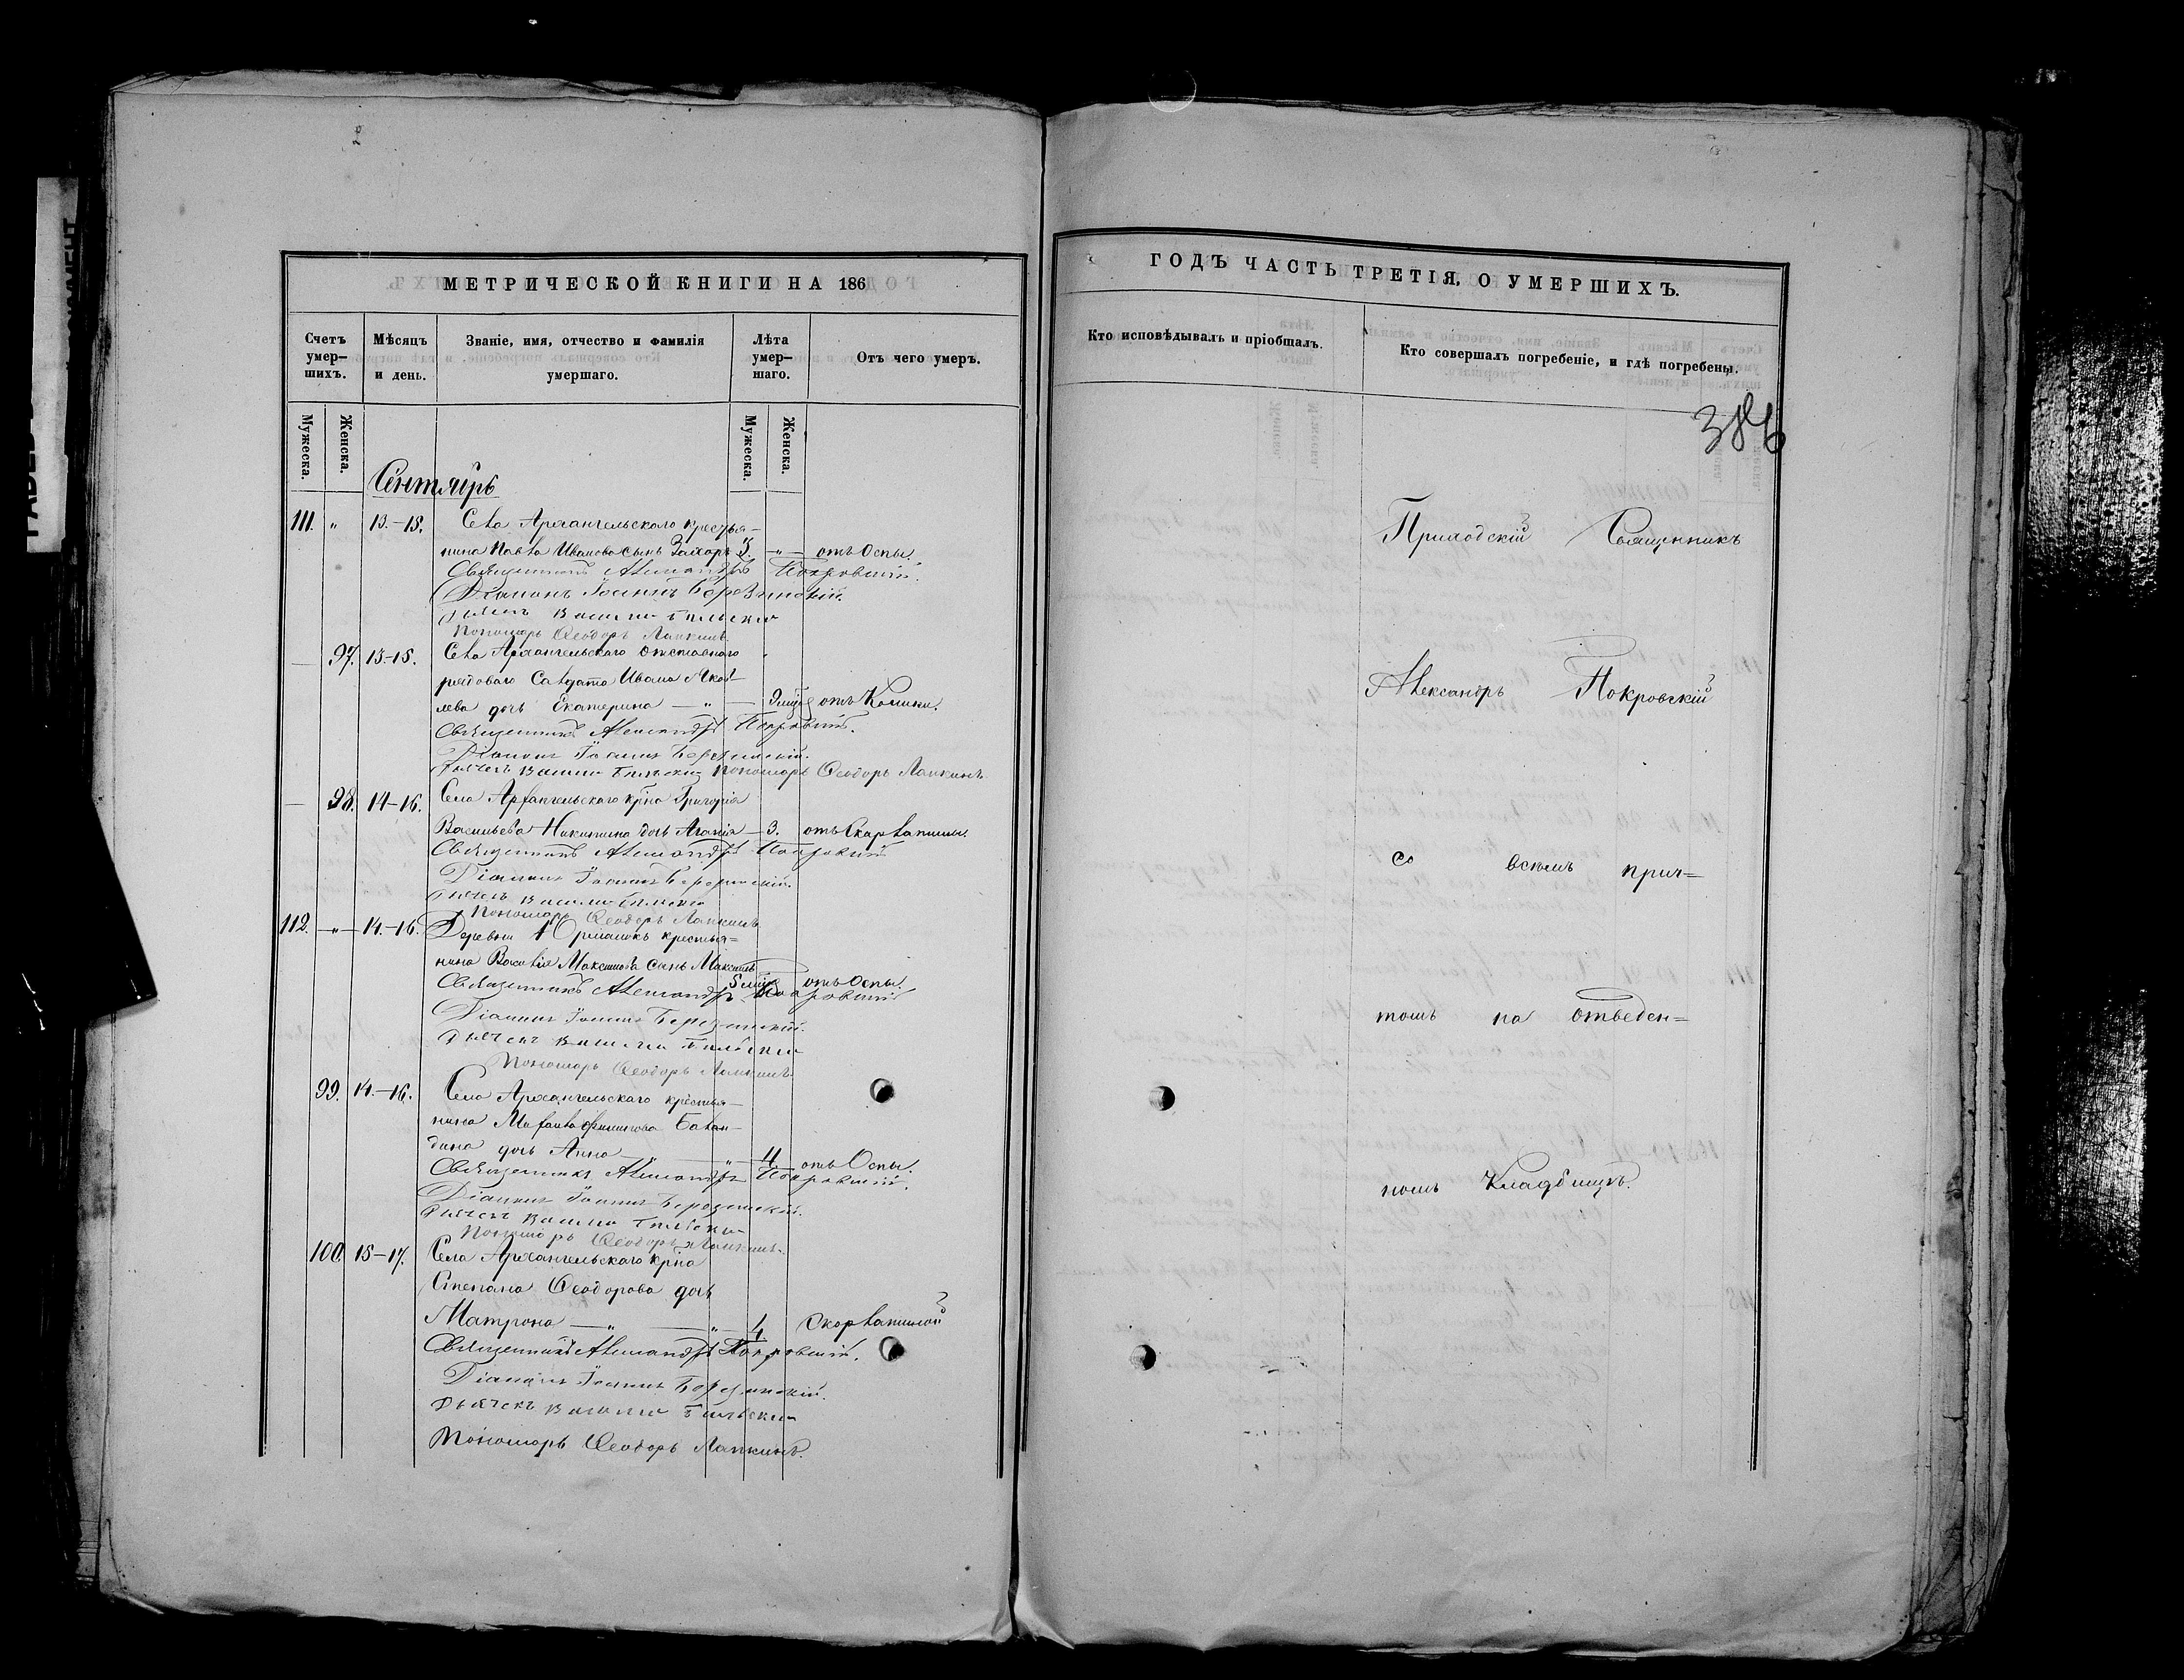 МЕТРИЧЕСКОЙ КНИГИ НА 186
Счетъ умер-шихъ.
Мѣсяцъ и день.
Званіе, имя, отчество и фамилія умершаго.
Лѣта умер-шаго.
Отъ чего умеръ.
Мужеска.
Женска.
Мужеска.
Женска.
Сентябрь
111. " 13.-15. Села Архангельскаго крестья-
нина Павла Иванова сынъ Захаръ 3. -"- отъ Оспы.
Священникъ Александръ Покровскій.
Діаконъ Іоаннъ Березинскій.
Дьячекъ Василій Бильскій
Пономарь Ѳеодоръ Лапкинъ.
97. 13-15. Села Архангельскаго отставнаго
рядоваго Салдата Ивана Яков-
лева дочь Екатерина - " - отъ Колики.
Священникъ Александръ Покровскій.
Діаконъ Іоаннъ Березинскій.
Дьячекъ Василій Бильскій Пономарь Ѳеодоръ Лапкинъ
98. 14-16. Села Архангельскаго крна Григорія
Васильева Никитина дочь Агапія - 3. отъ Скарлатины.
Священникъ Александръ Покровскій
Діаконъ Іоаннъ Березинскій.
Дьячекъ Василій Бильскій
Пономарь Ѳеодоръ Лапкинъ
112. -"- 14.-16. Деревни крестья=
нина Василія Максимова сынъ Максимъ
отъ Оспы.
Священникъ Александръ Покровскій
Діаконъ Іоаннъ Березинскій.
Дьячекъ Василій Бильскій
Пономарь Ѳеодоръ Лапкинъ.
99. 14.-16. Села Архангельскаго крестья-
нина Михаила Филипова Балан-
дина дочь Анна - " - 4. отъ Оспы.
Священникъ Александръ Покровскій.
Діаконъ Іоаннъ Березинскій.
Дьячекъ Василій Бильскій
Пономарь Ѳеодоръ Лапкинъ.
100. 15-17. Села Архангельскаго крна
Степана Ѳеодорова дочь
Матрона - " - " - Скорлатиной
Священникъ Александръ Покровскій.
Діаконъ Іоаннъ Березинскій.
Дьячекъ Василій Бильскій
Пономарь Ѳеодоръ Лапкинъ.
ГОДЪ ЧАСТЬ ТРЕТІЯ, О УМЕРШИХЪ.
Кто исповѣдывалъ и пріобщалъ.
Кто совершалъ погребеніе, и гдѣ погребены.
386
Приходскій Священникъ
Александръ Покровскій
со всѣмъ прич=
томъ на отведен=
номъ Кладбищѣ.